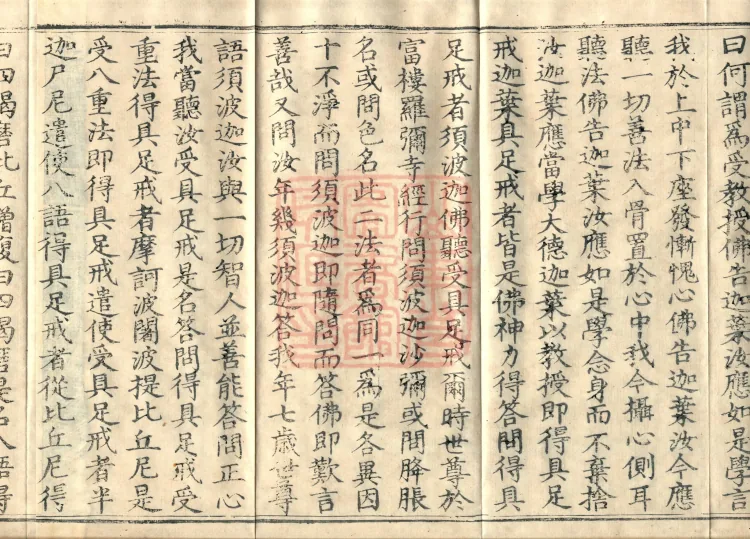 曰何謂為受教授佛告迦葉汝應如是學言
我於上中下座發慚愧心佛告迦葉汝今應
聽一切善法入骨置於心中我今攝心側耳
聽法佛告迦葉汝應如是學念身而不棄捨
汝迦葉應當學大德迦葉以教授即得具足
戒迦葉具足戒者皆是佛神力得答問得具
足戒者須波迦佛聽受具足戒爾時世尊於
富樓羅彌寺經行問須波迦沙彌或問膖脹
名或問色名此二法者為同一為是各異因
十不淨而問須波迦即隨問而答佛即歎言
善哉又問汝年幾須波迦答我年七歲世尊
語須波迦汝與一切智人並善能答問正心
我當聽汝受具足戒是名答問得具足戒受
重法得具足戒者摩訶波闍波提比丘尼是
受八重法即得具足戒遣使受具足戒者半
迦尸尼遣使八語得具足戒者從比丘尼得
白四羯磨比丘僧復白四羯磨是名八語得